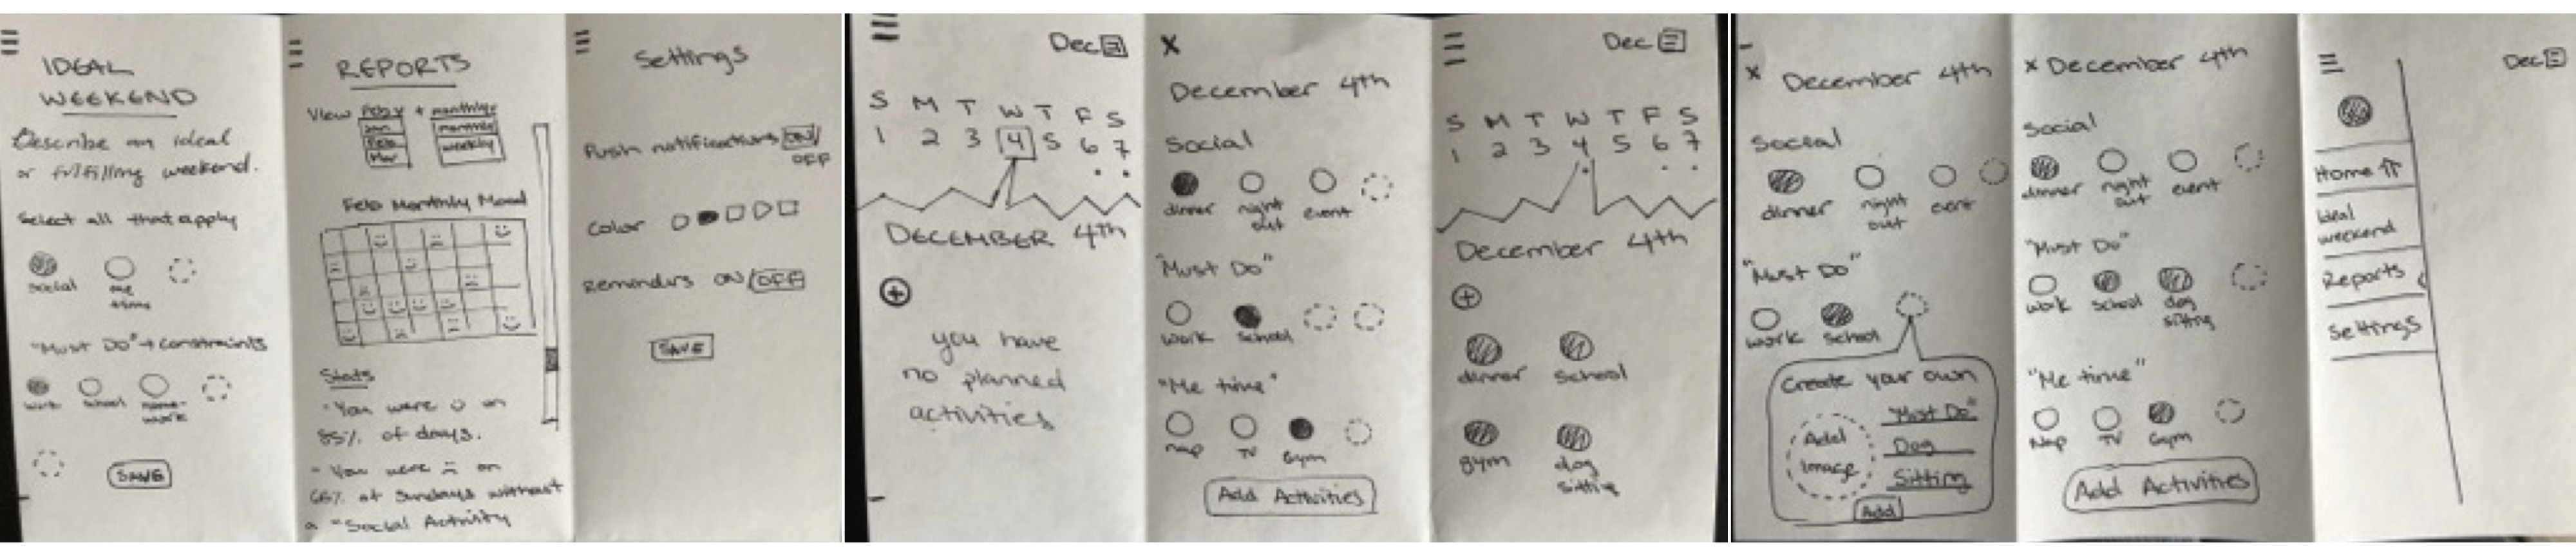 IDEAL
WEEKEND
Describe an ideal
or fulfilling weekend.
Select all that apply
social me time
"Must Do" + constraints
work school home-work
SAVE
REPORTS
View Feb + monthly
Jan monthly
Feb weekly
Mar
Feb Monthly Mood
Stats
- You were on
85% of days.
- You were on
of Sundays without
a "Social Activity
Settings
Push notifications ON/
OFF
Color
Reminders ON/OFF
SAVE
Dec
S M T W T F S
1 2 3 4 5 6 7
DECEMBER 4th
+
you have
no planned
activities
X
December 4th
Social
dinner night out event
"Must Do"
work school
"Me time"
nap TV Gym
Add Activities
Dec
S M T W T F S
1 2 3 4 5 6 7
December 4th
+
dinner school
gym dog
sitting
X December 4th
Social
dinner night out event
"Must Do"
work school
Create your own
Add "Must Do"
Image Dog
Sitting
Add
X December 4th
Social
dinner night out event
"Must Do"
work school dog sitting
"Me time"
Nap TV Gym
Add Activities
Dec
Home
Ideal
weekend
Reports
Settings